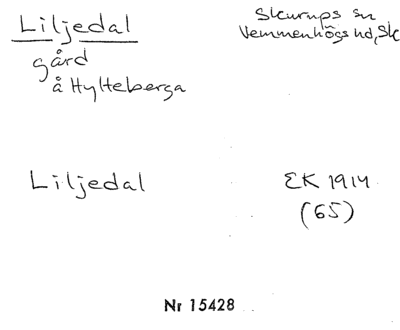 Liljedal
gård
å Hylteberga
Skurups sn
Vemmenhögs hd, Sk
Liljedal
EK 1914
(65)
Nr 15428